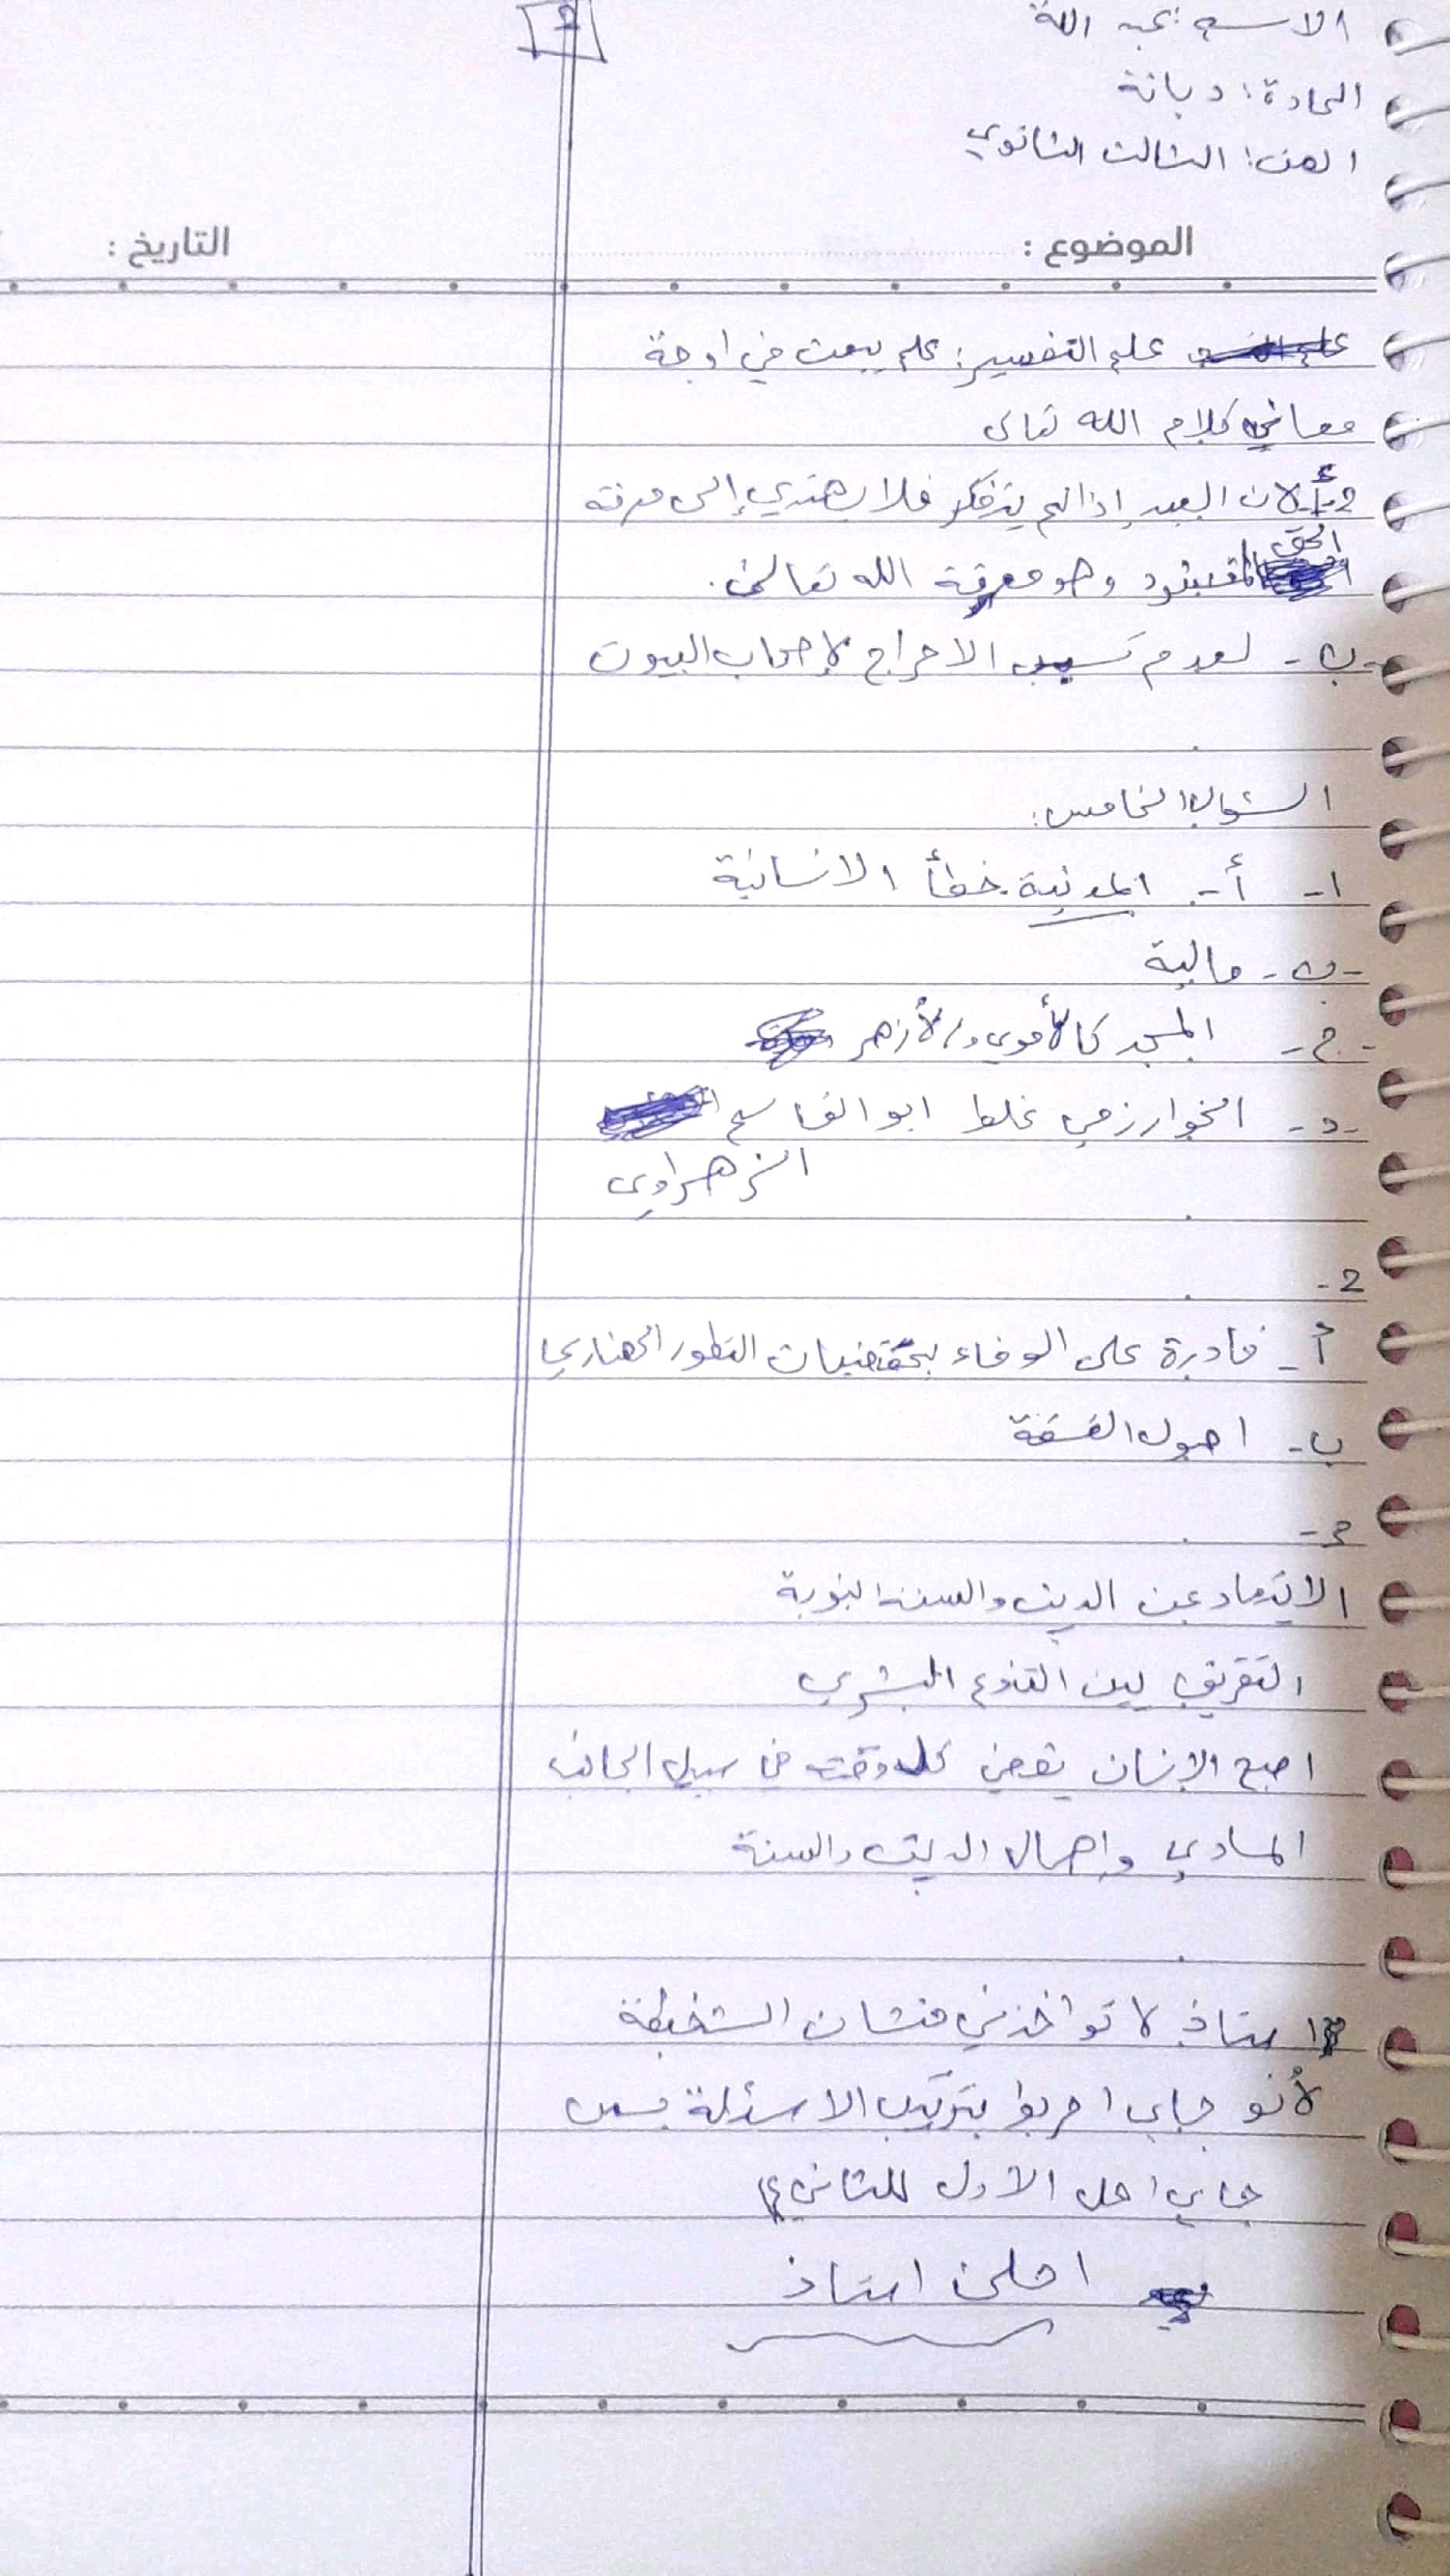 2
الاسم: عبد الله
المادة: ديانة
الصف: الثالث الثانوي
الموضوع :
التاريخ :
علم التفسير: علم يبحث في اوجة
معاني كلام الله تعالى
2- أ- لان العبد إذا لم يتفكر فلا يهتدي إلى معرفة
الحق
المقصود وهو معرفة الله تعالى.
ب- لعدم تسبب الاحراج لإصحاب البيوت
السؤال الخامس:
1- أ- المدنية خطأ الانسانية
ب- مالية
ج- المسجد كالأموي والأزهر
د- الخوارزمي غلط ابو القاسم
الزهراوي
2-
أ- قادرة على الوفاء بمقتضيات التطور الحضاري
ب- اصول الفقة
3-
الابتعاد عن الدين والسنة النبوية
التفريق بين التنوع البشري
اصبح الإنسان يقضي كل وقته في سبيل الجانب
المادي واهمال الدين والسنة
استاذ لا تواخذني منشان الشخبطة
لأنو جاي اربط بترتيب الاسئلة بس
جاي احل الاول للثاني
احلى استاذ